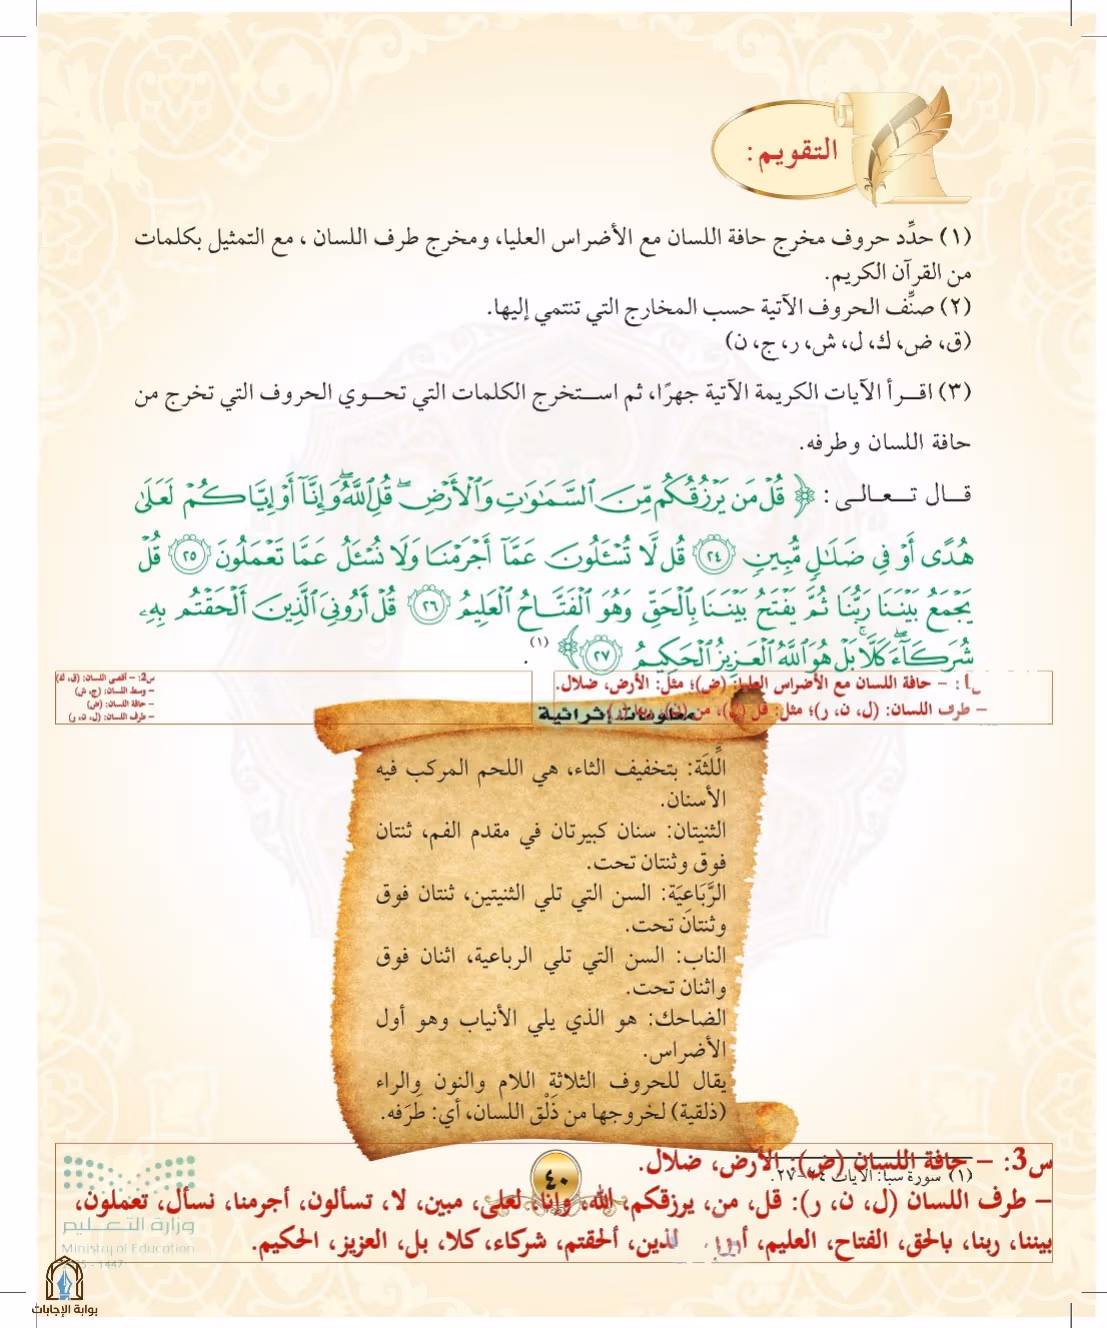 التقويم:
(١) حدِّد حروف مخرج حافة اللسان مع الأضراس العليا، ومخرج طرف اللسان ، مع التمثيل بكلمات
من القرآن الكريم.
(٢) صنِّف الحروف الآتية حسب المخارج التي تنتمي إليها.
(ق، ض، ك، ل، ش، ر، ج، ن)
(٣) اقـــرأ الآيات الكريمة الآتية جهرًا، ثم استخرج الكلمات التي تحوي الحروف التي تخرج من
حافة اللسان وطرفه.
قال تعالى: ﴿ قُلْ مَن يَرْزُقُكُم مِّنَ السَّمَٰوَٰتِ وَالْأَرْضِ ۖ قُلِ اللَّهُ ۖ وَإِنَّآ أَوْ إِيَّاكُمْ لَعَلَىٰ
هُدًى أَوْ فِي ضَلَٰلٍ مُّبِينٍ ٢٤ قُل لَّا تُسْـَٔلُونَ عَمَّآ أَجْرَمْنَا وَلَا نُسْـَٔلُ عَمَّا تَعْمَلُونَ ٢٥ قُلْ
يَجْمَعُ بَيْنَنَا رَبُّنَا ثُمَّ يَفْتَحُ بَيْنَنَا بِالْحَقِّ وَهُوَ الْفَتَّاحُ الْعَلِيمُ ٢٦ قُلْ أَرُونِيَ الَّذِينَ أَلْحَقْتُم بِهِۦ
شُرَكَآءَ ۖ كَلَّا ۚ بَلْ هُوَ اللَّهُ الْعَزِيزُ الْحَكِيمُ ٢٧ ﴾ (١) .
س1: – حافة اللسان مع الأضراس العليا: (ض)؛ مثل: الأرض، ضلال.
– طرف اللسان: (ل، ن، ر)؛ مثل: قل (ل)، من (ن)،
س2: – أقصى اللسان: (ق، ك)
– وسط اللسان: (ج، ش)
– حافة اللسان: (ض)
– طرف اللسان: (ل، ن، ر)
معلومات إثرائية
اللِّثَة: بتخفيف الثاء، هي اللحم المركب فيه
الأسنان.
الثنيتان: سنان كبيرتان في مقدم الفم، ثنتان
فوق وثنتان تحت.
الرَّبَاعيَة: السن التي تلي الثنيتين، ثنتان فوق
وثنتان تحت.
الناب: السن التي تلي الرباعية، اثنان فوق
واثنان تحت.
الضاحك: هو الذي يلي الأنياب وهو أول
الأضراس.
يقال للحروف الثلاثة اللام والنون والراء
(ذلقية) لخروجها من ذَلْق اللسان، أي: طَرَفه.
س3: – حافة اللسان (ض): الأرض، ضلال.
(١) سورة سبأ: الآيات ٢٤-٢٧.
٤٠
– طرف اللسان (ل، ن، ر): قل، من، يرزقكم، الله، وإنا، لعلى، مبين، لا، تسألون، أجرمنا، نسأل، تعملون،
بيننا، ربنا، بالحق، الفتاح، العليم، الذين، ألحقتم، شركاء، كلا، بل، العزيز، الحكيم.
وزارة التعليم
Ministry of Education
- 1447
بوابة الإجابات